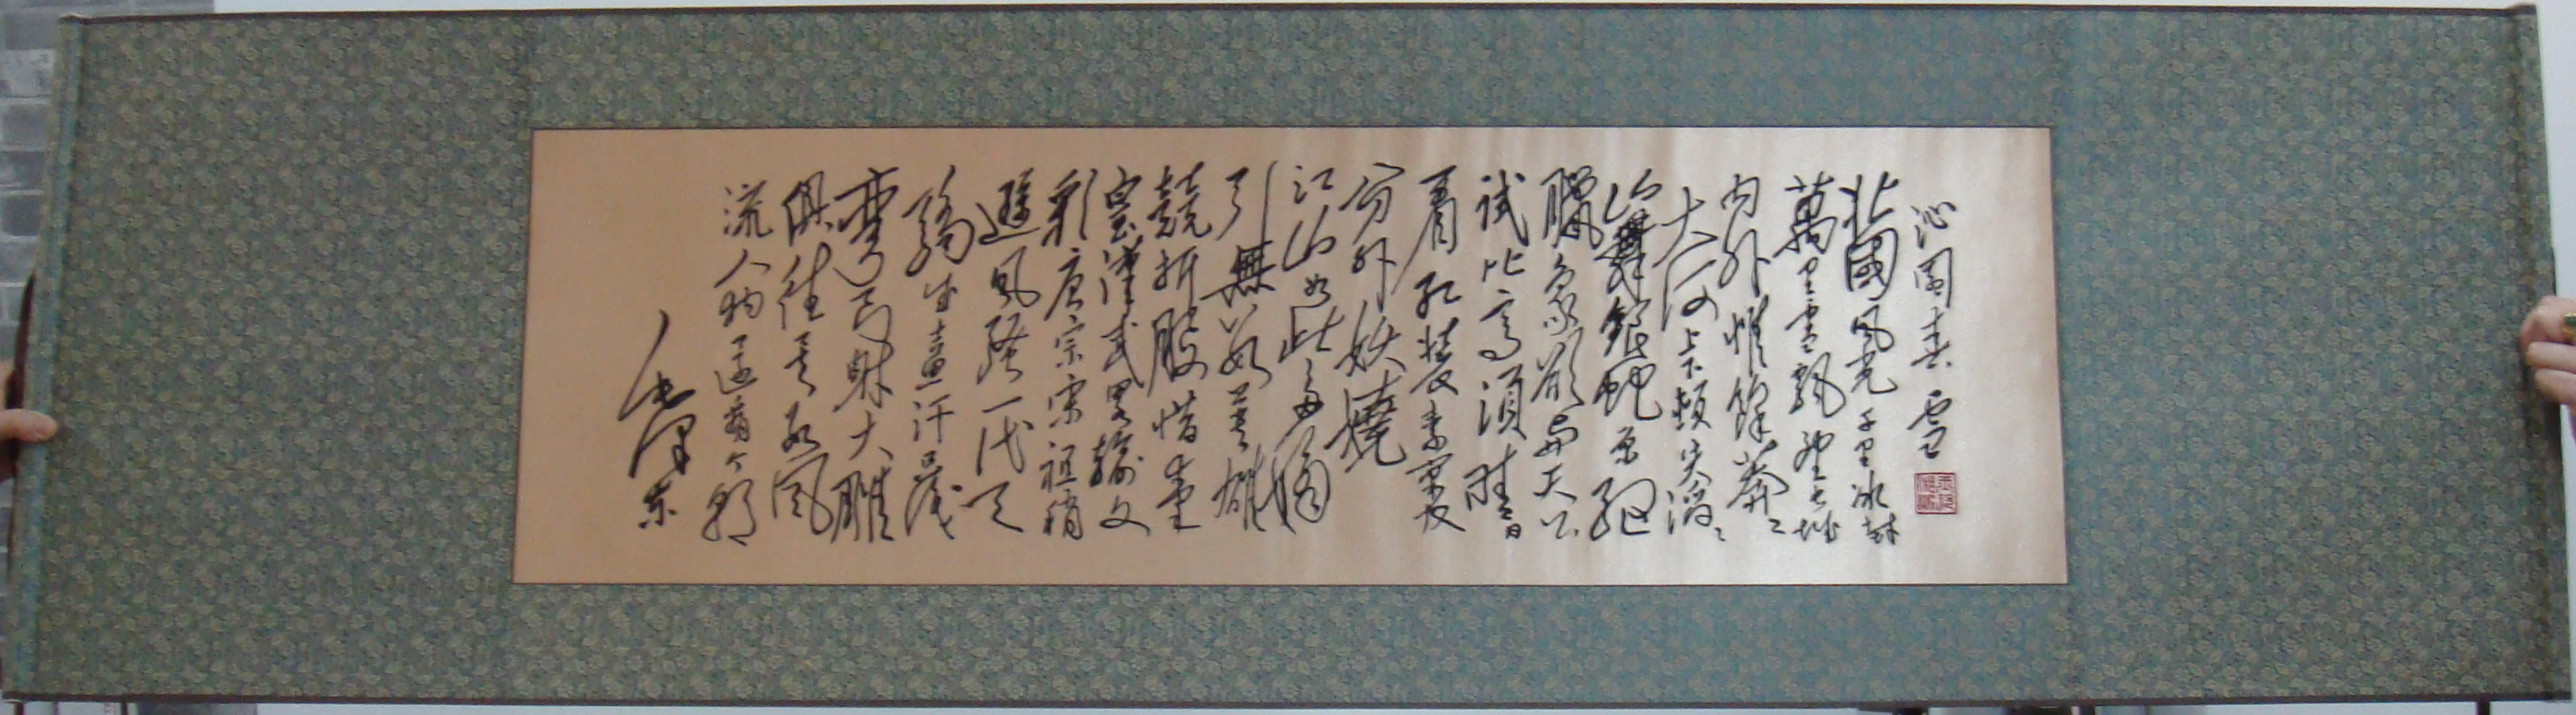 沁園春 雪
北國風光千里冰封
萬里雪飄望長城
内外惟餘莽〻
大河上下頓失滔〻
山舞銀蛇原驅
臘象欲與天公
試比高須晴日
看紅裝素裹
分外妖嬈
江山如此多嬌
引無數英雄
競折腰惜秦
皇漢武略輸文
彩唐宗宋祖稍
遜風騷一代天
驕成吉思汗只識
彎弓射大雕
俱往矣數風
流人物還看今朝
毛澤东